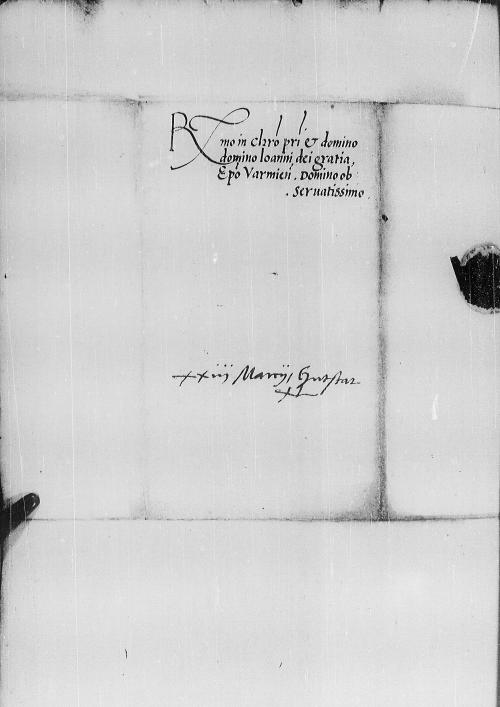 Rmo in Chro pri & domino
domino Ioanni dei gratia,
Epo Varmien. Domino ob
servatissimo.
xxiij Marcij, Gutstat
XL